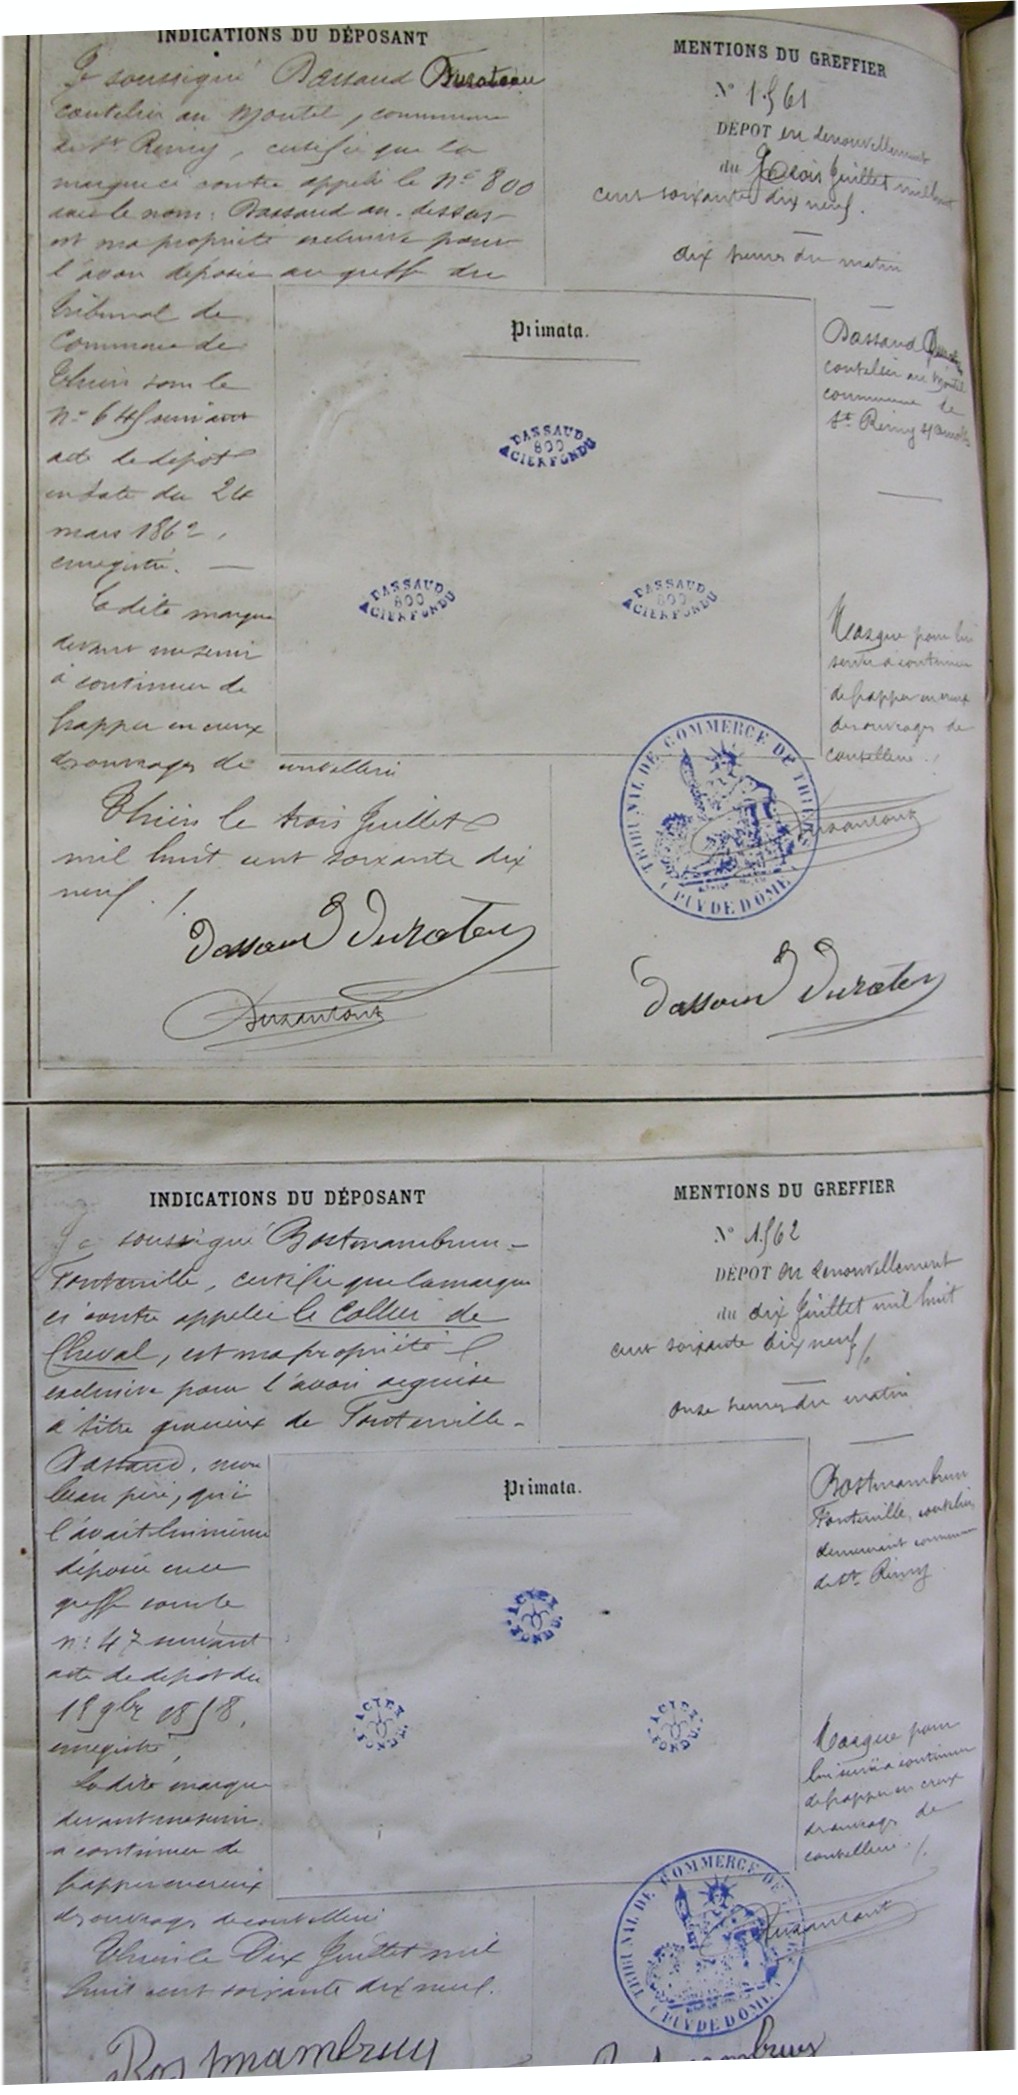 INDICATIONS DU DÉPOSANT
Je soussigné Dassaud Durateau
coutelier au Montel, commune
de St Remy, certifie que la
marque ci contre appelée le No 800
avec le nom: Dassaud au-dessus
est ma propriété exclusive pour
l'avoir déposée au greffe du
tribunal de
Commerce de
Thiers sous le
no 645 suivant
acte de dépot
en date du 24
mars 1862,
enregistré. —
La dite marque
devant me servir
à continuer de
frapper en creux
des ouvrages de coutellerie
Thiers le trois Juillet
mil huit cent soixante dix
neuf ./.
Dassaud Durateau
MENTIONS DU GREFFIER
No 1561
DÉPOT en renouvellement
du Trois Juillet mil huit
cent soixante dix neuf.
dix heures du matin
Dassaud
coutelier au Montel
commune de
St Remy
Marque pour lui
servir à continuer
de frapper en creux
des ouvrages de
coutellerie ./.
Primata.
DASSAUD
800
ACIER FONDU
DASSAUD
800
ACIER FONDU
DASSAUD
800
ACIER FONDU
TRIBUNAL DE COMMERCE DE THIERS
(PUY DE DÔME)
Dassaud Durateau
INDICATIONS DU DÉPOSANT
Je soussigné Bostmambrun-
Fontenille, certifie que la marque
ci contre appelée le Collier de
Cheval, est ma propriété
exclusive pour l'avoir acquise
à titre gracieux de Fontenille-
Dassaud, mon
beau père, qui
l'avait lui même
déposée en ce
greffe sous le
no 47 suivant
acte de dépot du
15 9bre 1858,
enregistré,
La dite marque
devant me servir
à continuer de
frapper en creux
des ouvrages de coutellerie
Thiers le Dix Juillet mil
huit cent soixante dix neuf.
Bostmambrun
MENTIONS DU GREFFIER
No 1562
DÉPOT en renouvellement
du dix Juillet mil huit
cent soixante dix neuf ./.
onze heures du matin
Bostmambrun
Fontenille, coutelier,
demeurant commune
de St Remy
Marque pour
lui servir à continuer
de frapper en creux
des ouvrages de
coutellerie ./.
Primata.
ACIER FONDU
ACIER FONDU
ACIER FONDU
TRIBUNAL DE COMMERCE DE
(PUY DE DÔME)